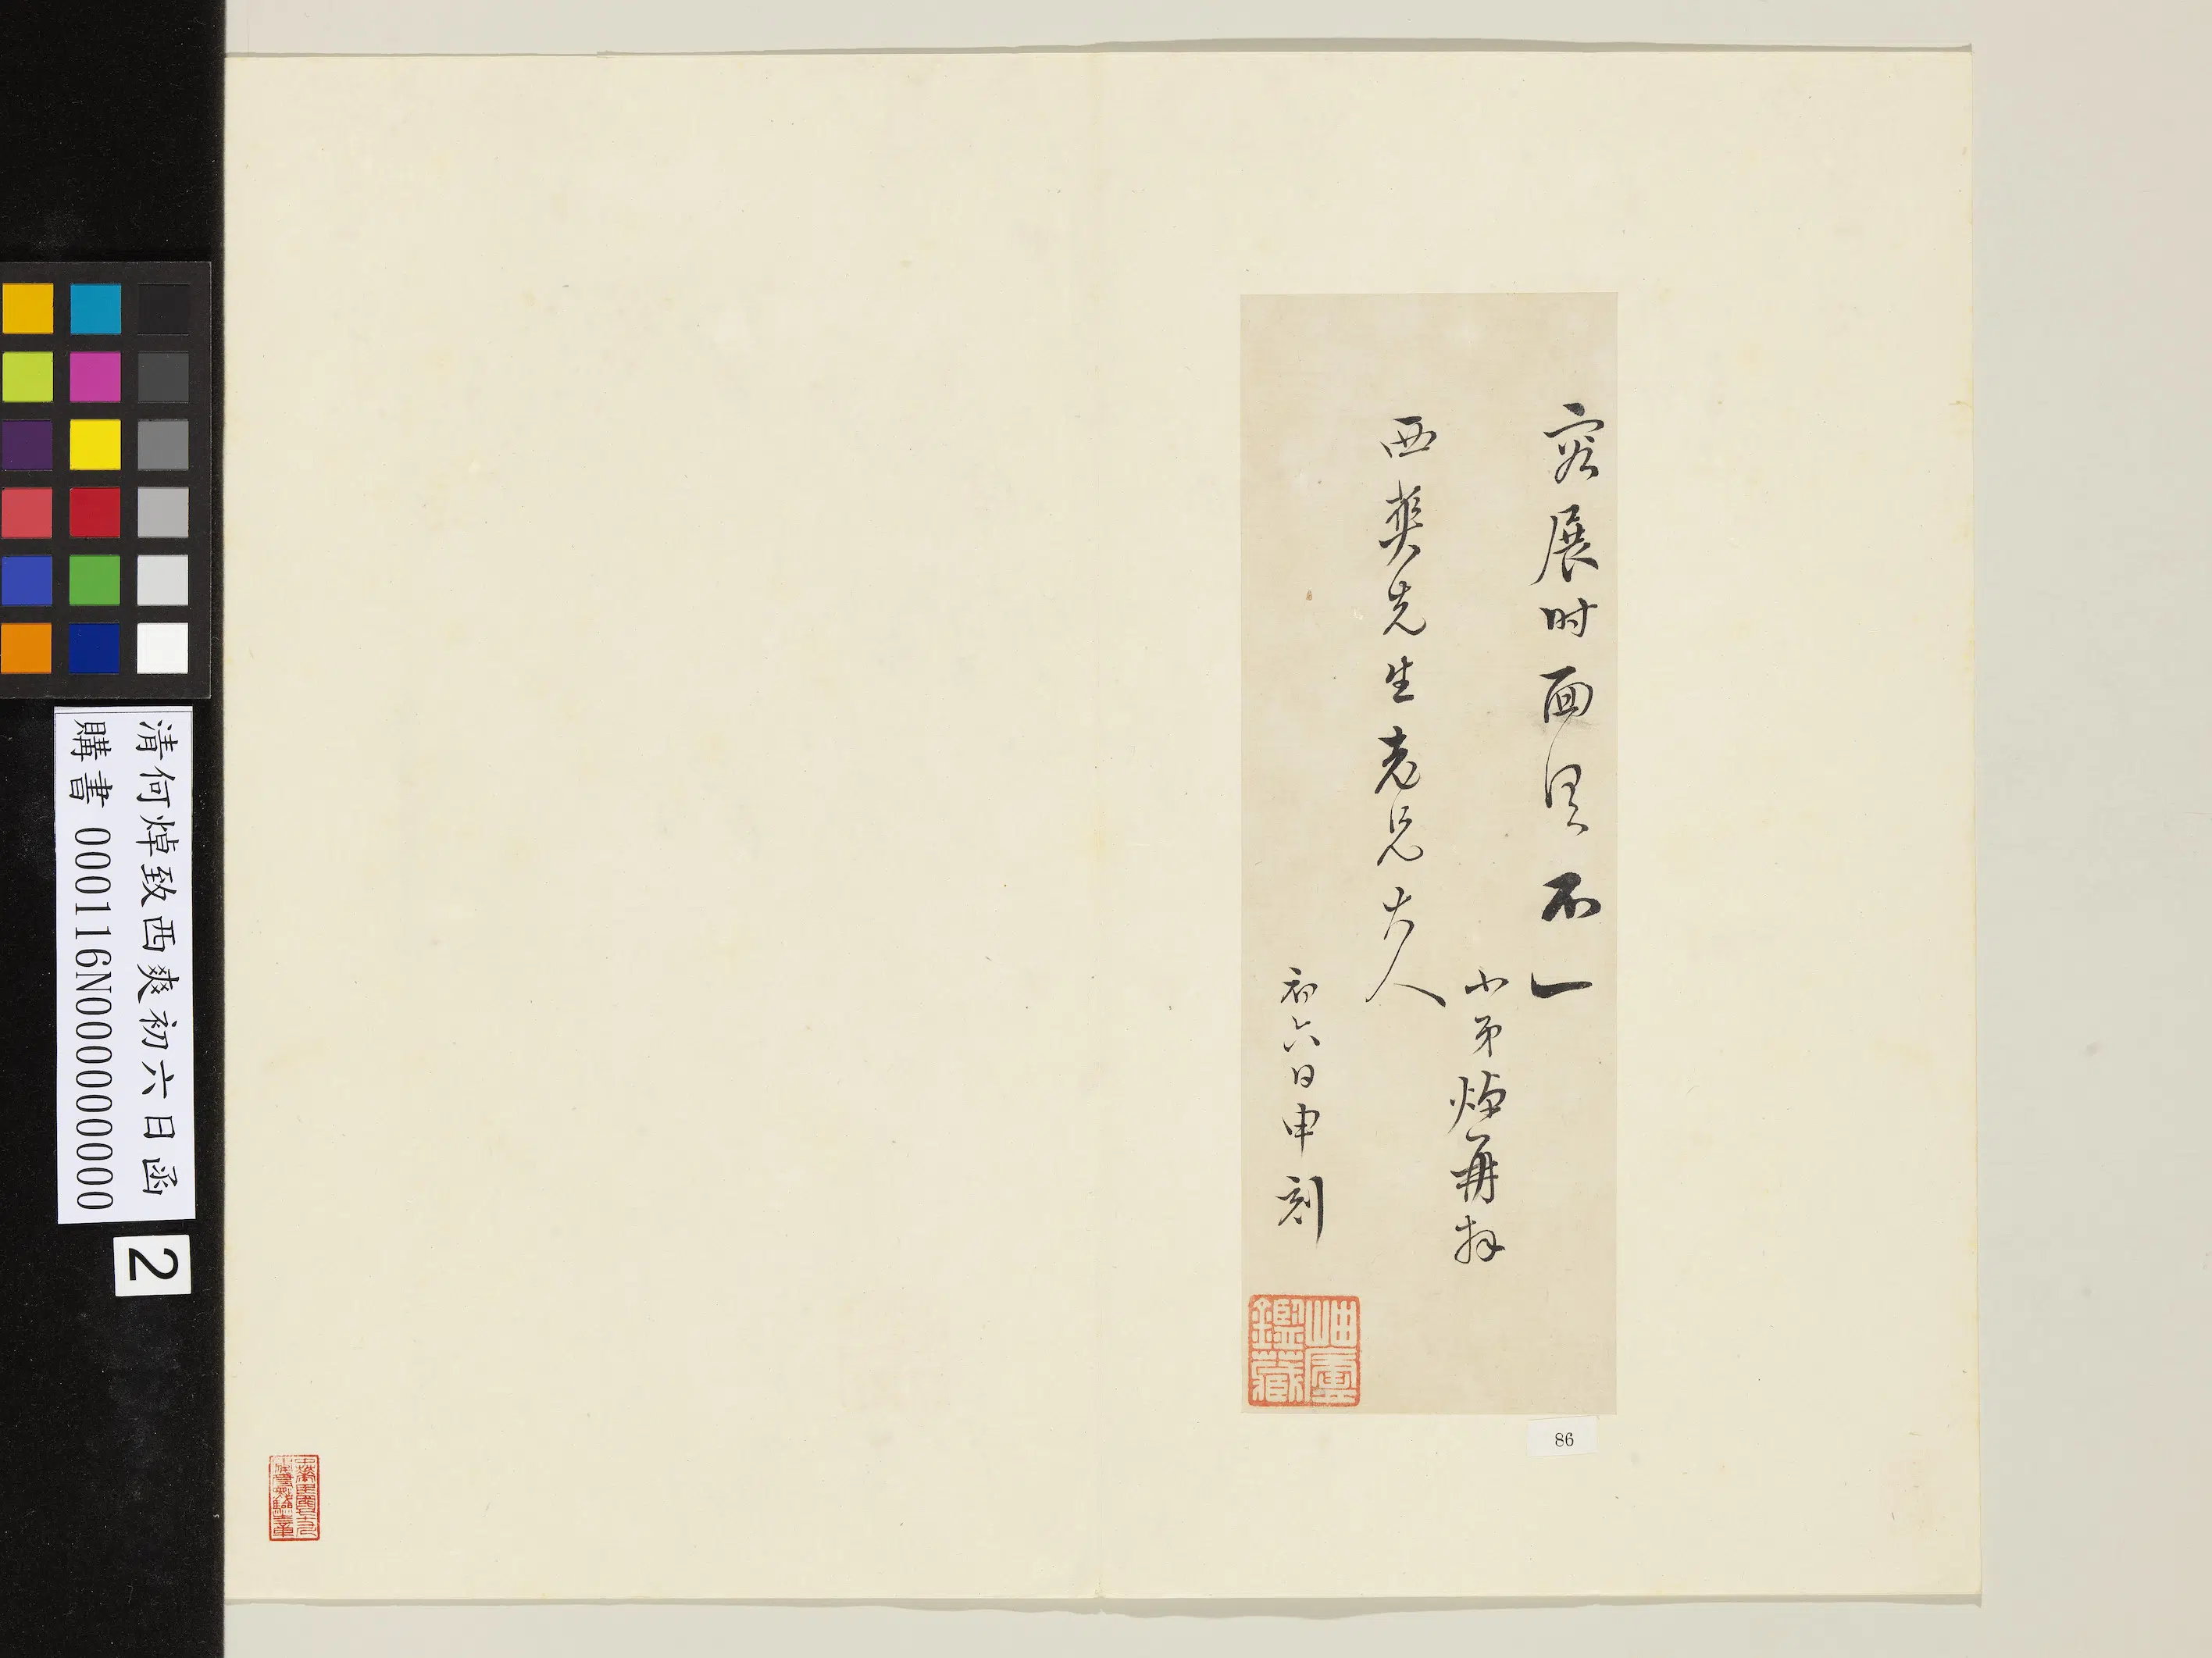 容展时面罄不一
小弟焯再拜
西爽先生老兄大人
初六日申刻
岫廬鑑藏
86
清何焯致西爽初六日函
購書 000116N000000000
2